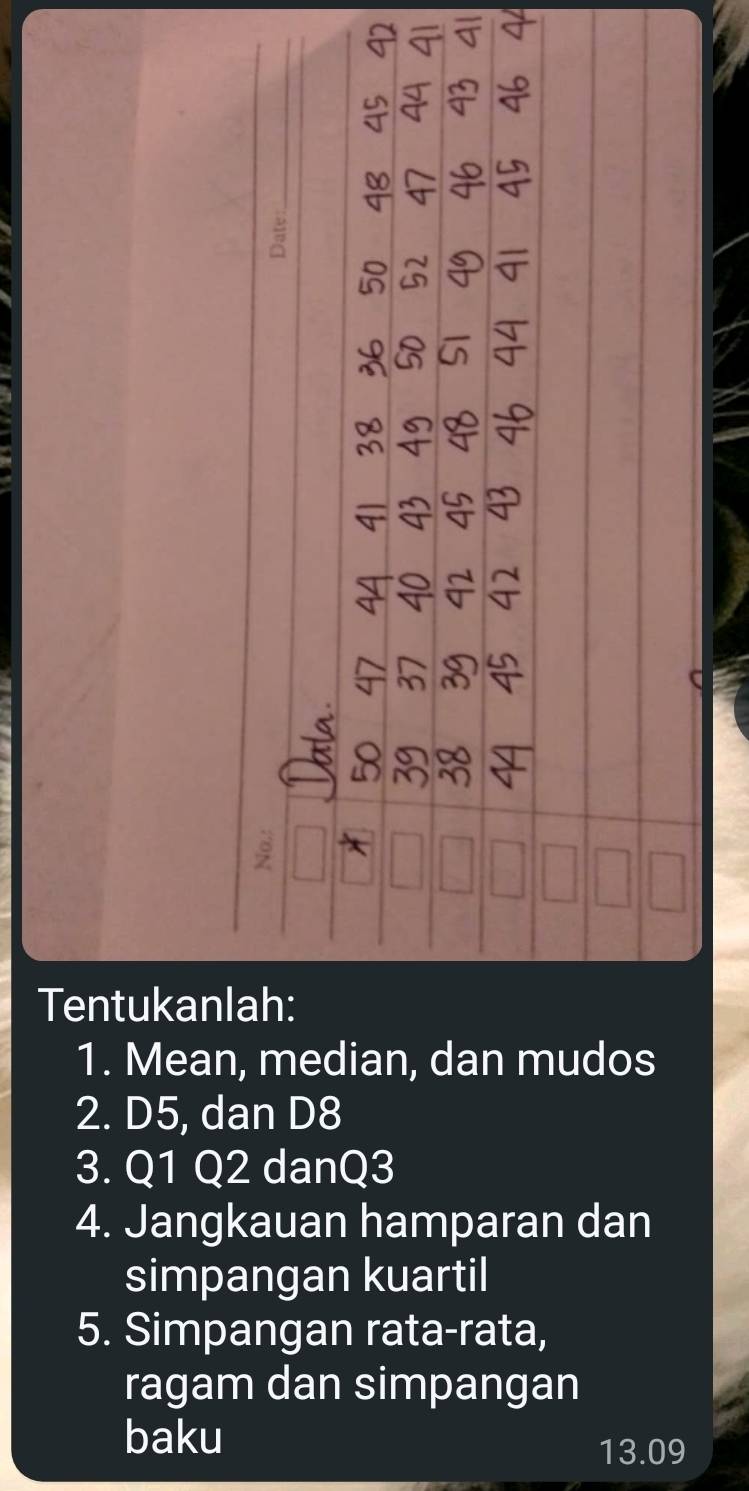 No.:
Date:
Data.
50 47 44 41 38 36 50 48 45 42
39 37 40 43 49 50 52 47 44 41
38 39 42 45 48 51 49 46 43 41
44 45 42 43 46 44 41 45 46
Tentukanlah:
1. Mean, median, dan mudos
2. D5, dan D8
3. Q1 Q2 danQ3
4. Jangkauan hamparan dan
simpangan kuartil
5. Simpangan rata-rata,
ragam dan simpangan
baku
13.09